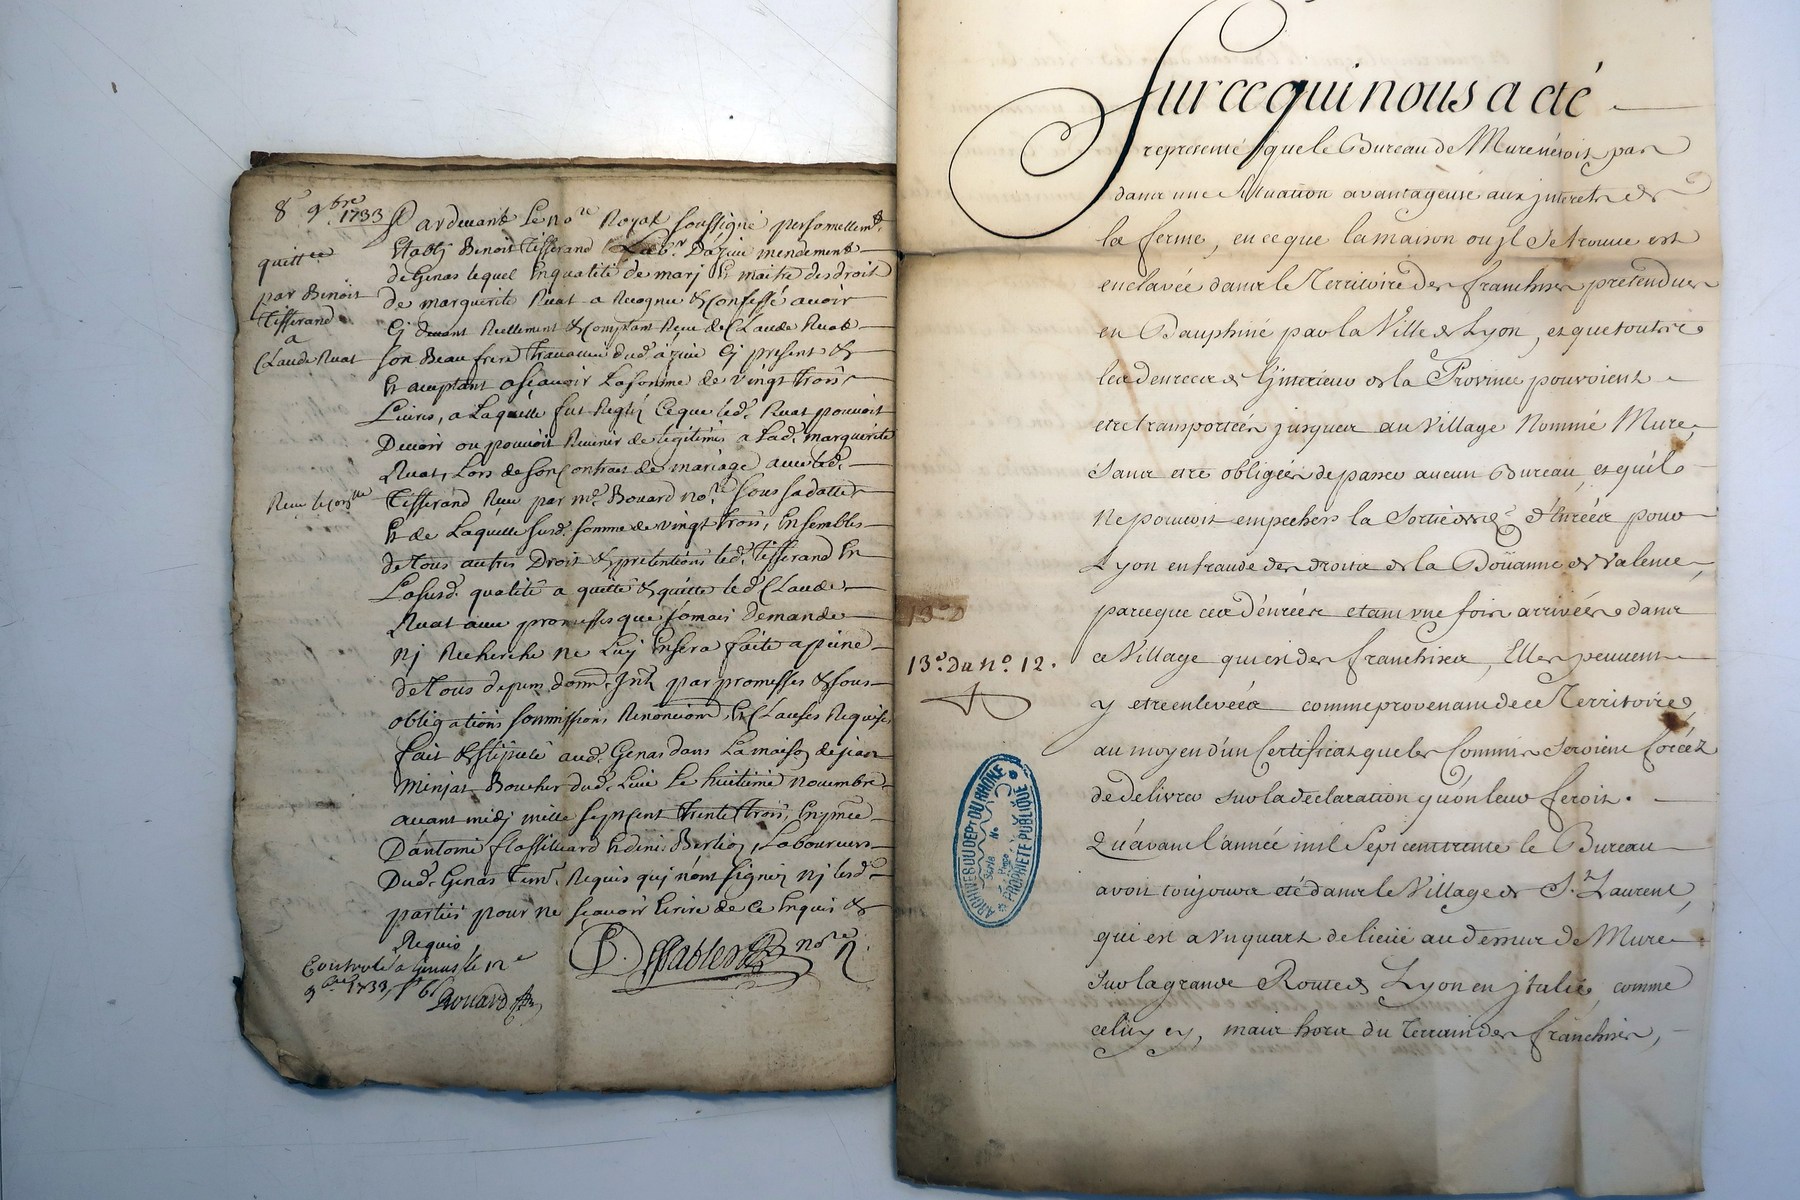 8e 9bre 1733
quittce
par Benoit
Tisserand
a
Claude Ruat
Pardevant Le nore Royal soussigné personnellemt
Etably Benoit Tisserand Labr. D'azieu mendement
de Genas lequel En qualité de mary Et maitre des droit
de marguerite Ruat a Recognu & Confessé avoir
Cy devant Reellement & Comptant Reçu de Claude Ruat
son Beau frere travailleur dud. azieu Cy present &
Et acceptant asçavoir La somme de vingt trois
Livres, a Laquelle fut Reglé Ceque led. Ruat pouvoit
Devoir ou pouvoit Revenir de legitime a Lad. marguerite
Ruat, Lors de son Contract de mariage avec led.
Tisserand Reçu par me. Bouard nore sous sa datte
Et de Laquelle susd. somme de vingt trois, Ensembles
de tous autres Droit & pretentions led. Tisserand En
La susd. qualité a quitté & quitte led. Claude
Ruat avec promesses que jamais demande
ny Recherche ne Luy En sera faite a peine
de tous depens dom. Int. par promesses & sous
obligations soumissions Renonciaons Et Clauses Requises
fait & stipulé aud. Genas dans La maison de jean
Minjat Boucher dud. Lieu Le huitieme novembre
avant midy mille sept sent trente trois, En pnce
D'antoine flassilliard Et deni Berlioz, Laboureurs
Dud. Genas tem. Requis quy n'ont signer ny lesd.
parties pour ne sçavoir Ecrire de Ce Enquis &
Requis
Controlé a Genas le 12e
9bre 1733,
Bouard
nore
Sur ce qui nous a eté
representé que le Bureau de Mure n'etoit pas
dans une Situation avantageuse aux interets de
la ferme, en ce que la maison ou il Se trouve est
enclavée dans le Territoire des franchises pretendues
en Dauphiné par la Ville de Lyon, et que toutes
les denrées de l'jnterieur de la Province pouvoient
etre transportées jusques au Village Nommé Mure,
sans etre obligées de passer aucun Bureau, et qu'il
ne pouvoit empecher la Sortie desd. denrées pour
Lyon en fraude des droits de la Doüanne de Valence,
parceque ces dénrées etant une fois arrivées dans
ce Village qui est des franchises, Elles peuvent
y etre enlevées comme provenant de ce Territoire,
au moyen d'un Certificat que les Commis Seroient forcéz
de delivrer sur la declaration qu'on leur feroit.
Qu'avant l'année mil Sept cent trente le Bureau
avoit toujours eté dans le Village de St. Laurent,
qui est a un quart de lieüe au dessus de Mure
sur la grande Route de Lyon en jtalie, comme
celuy cy, mais hors du terrain des franchises,
13e. du no. 12.
ARCHIVES DU DEPt DU RHÔNE
Série
No
Page
PROPRIÉTÉ PUBLIQUE